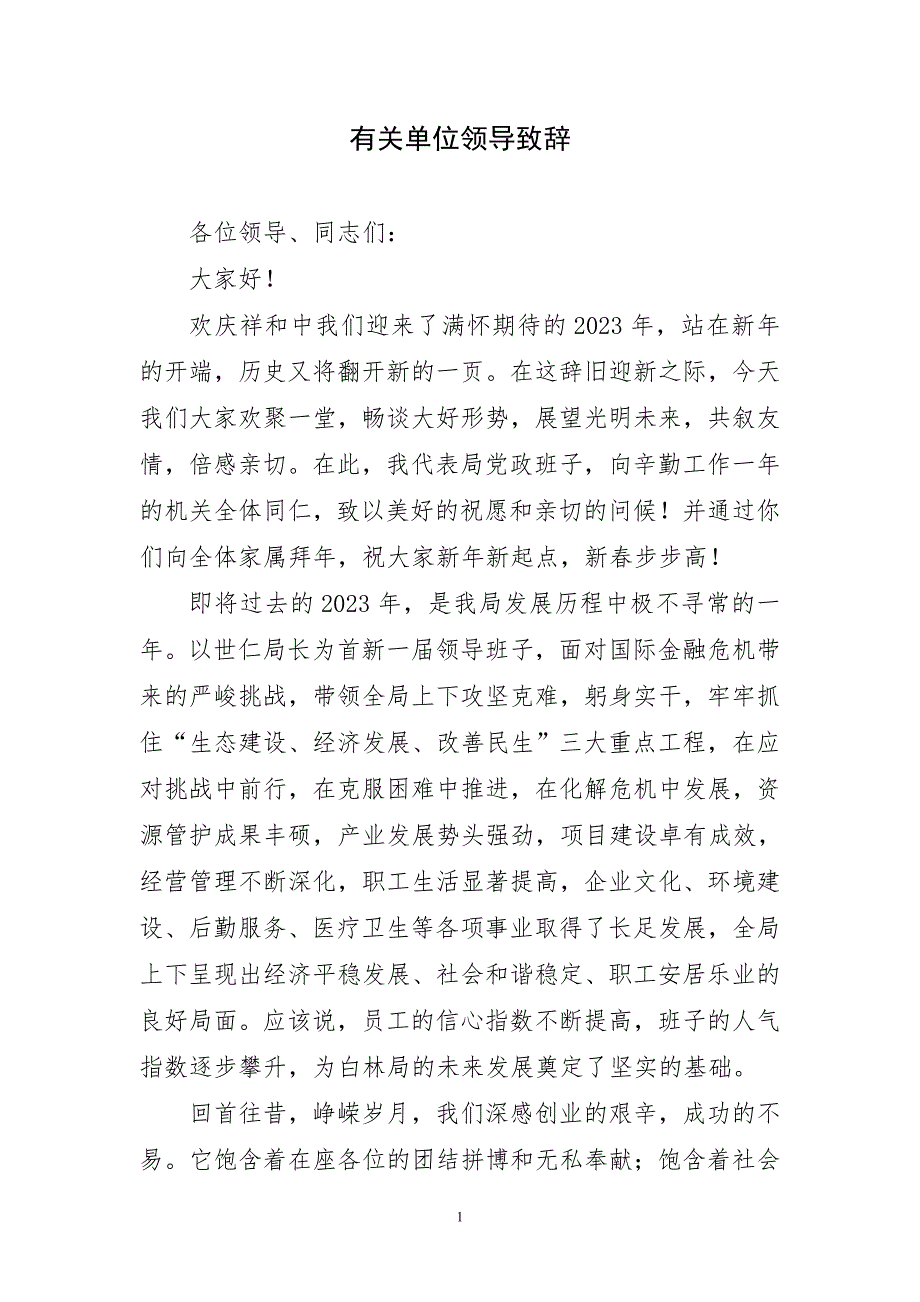 有关单位领导致辞
各位领导、同志们：
大家好！
欢庆祥和中我们迎来了满怀期待的 2023 年，站在新年
的开端，历史又将翻开新的一页。在这辞旧迎新之际，今天
我们大家欢聚一堂，畅谈大好形势，展望光明未来，共叙友
情，倍感亲切。在此，我代表局党政班子，向辛勤工作一年
的机关全体同仁，致以美好的祝愿和亲切的问候！并通过你
们向全体家属拜年，祝大家新年新起点，新春步步高！
即将过去的 2023 年，是我局发展历程中极不寻常的一
年。以世仁局长为首新一届领导班子，面对国际金融危机带
来的严峻挑战，带领全局上下攻坚克难，躬身实干，牢牢抓
住“生态建设、经济发展、改善民生”三大重点工程，在应
对挑战中前行，在克服困难中推进，在化解危机中发展，资
源管护成果丰硕，产业发展势头强劲，项目建设卓有成效，
经营管理不断深化，职工生活显著提高，企业文化、环境建
设、后勤服务、医疗卫生等各项事业取得了长足发展，全局
上下呈现出经济平稳发展、社会和谐稳定、职工安居乐业的
良好局面。应该说，员工的信心指数不断提高，班子的人气
指数逐步攀升，为白林局的未来发展奠定了坚实的基础。
回首往昔，峥嵘岁月，我们深感创业的艰辛，成功的不
易。它饱含着在座各位的团结拼博和无私奉献；饱含着社会
1